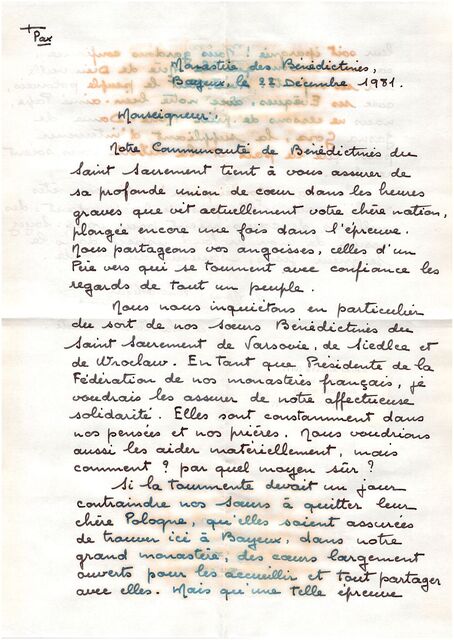 +
Pax
Monastère des Bénédictines,
Bayeux, le 22 Décembre 1981.
Monseigneur,
Notre Communauté de Bénédictines du
Saint Sacrement tient à vous assurer de
sa profonde union de cœur dans les heures
graves que vit actuellement votre chère nation,
plongée encore une fois dans l'épreuve.
Nous partageons vos angoisses, celles d'un
Père vers qui se tournent avec confiance les
regards de tout un peuple.
Nous nous inquiétons en particulier
du sort de nos sœurs Bénédictines du
Saint Sacrement de Varsovie, de Siedlce et
de Wroclaw. En tant que Présidente de la
Fédération de nos monastères français, je
voudrais les assurer de notre affectueuse
solidarité. Elles sont constamment dans
nos pensées et nos prières. Nous voudrions
aussi les aider matériellement, mais
comment ? par quel moyen sûr ?
Si la tourmente devait un jour
contraindre nos sœurs à quitter leur
chère Pologne, qu'elles soient assurées
de trouver ici à Bayeux, dans notre
grand monastère, des cœurs largement
ouverts pour les accueillir et tout partager
avec elles. Mais qu'une telle épreuve